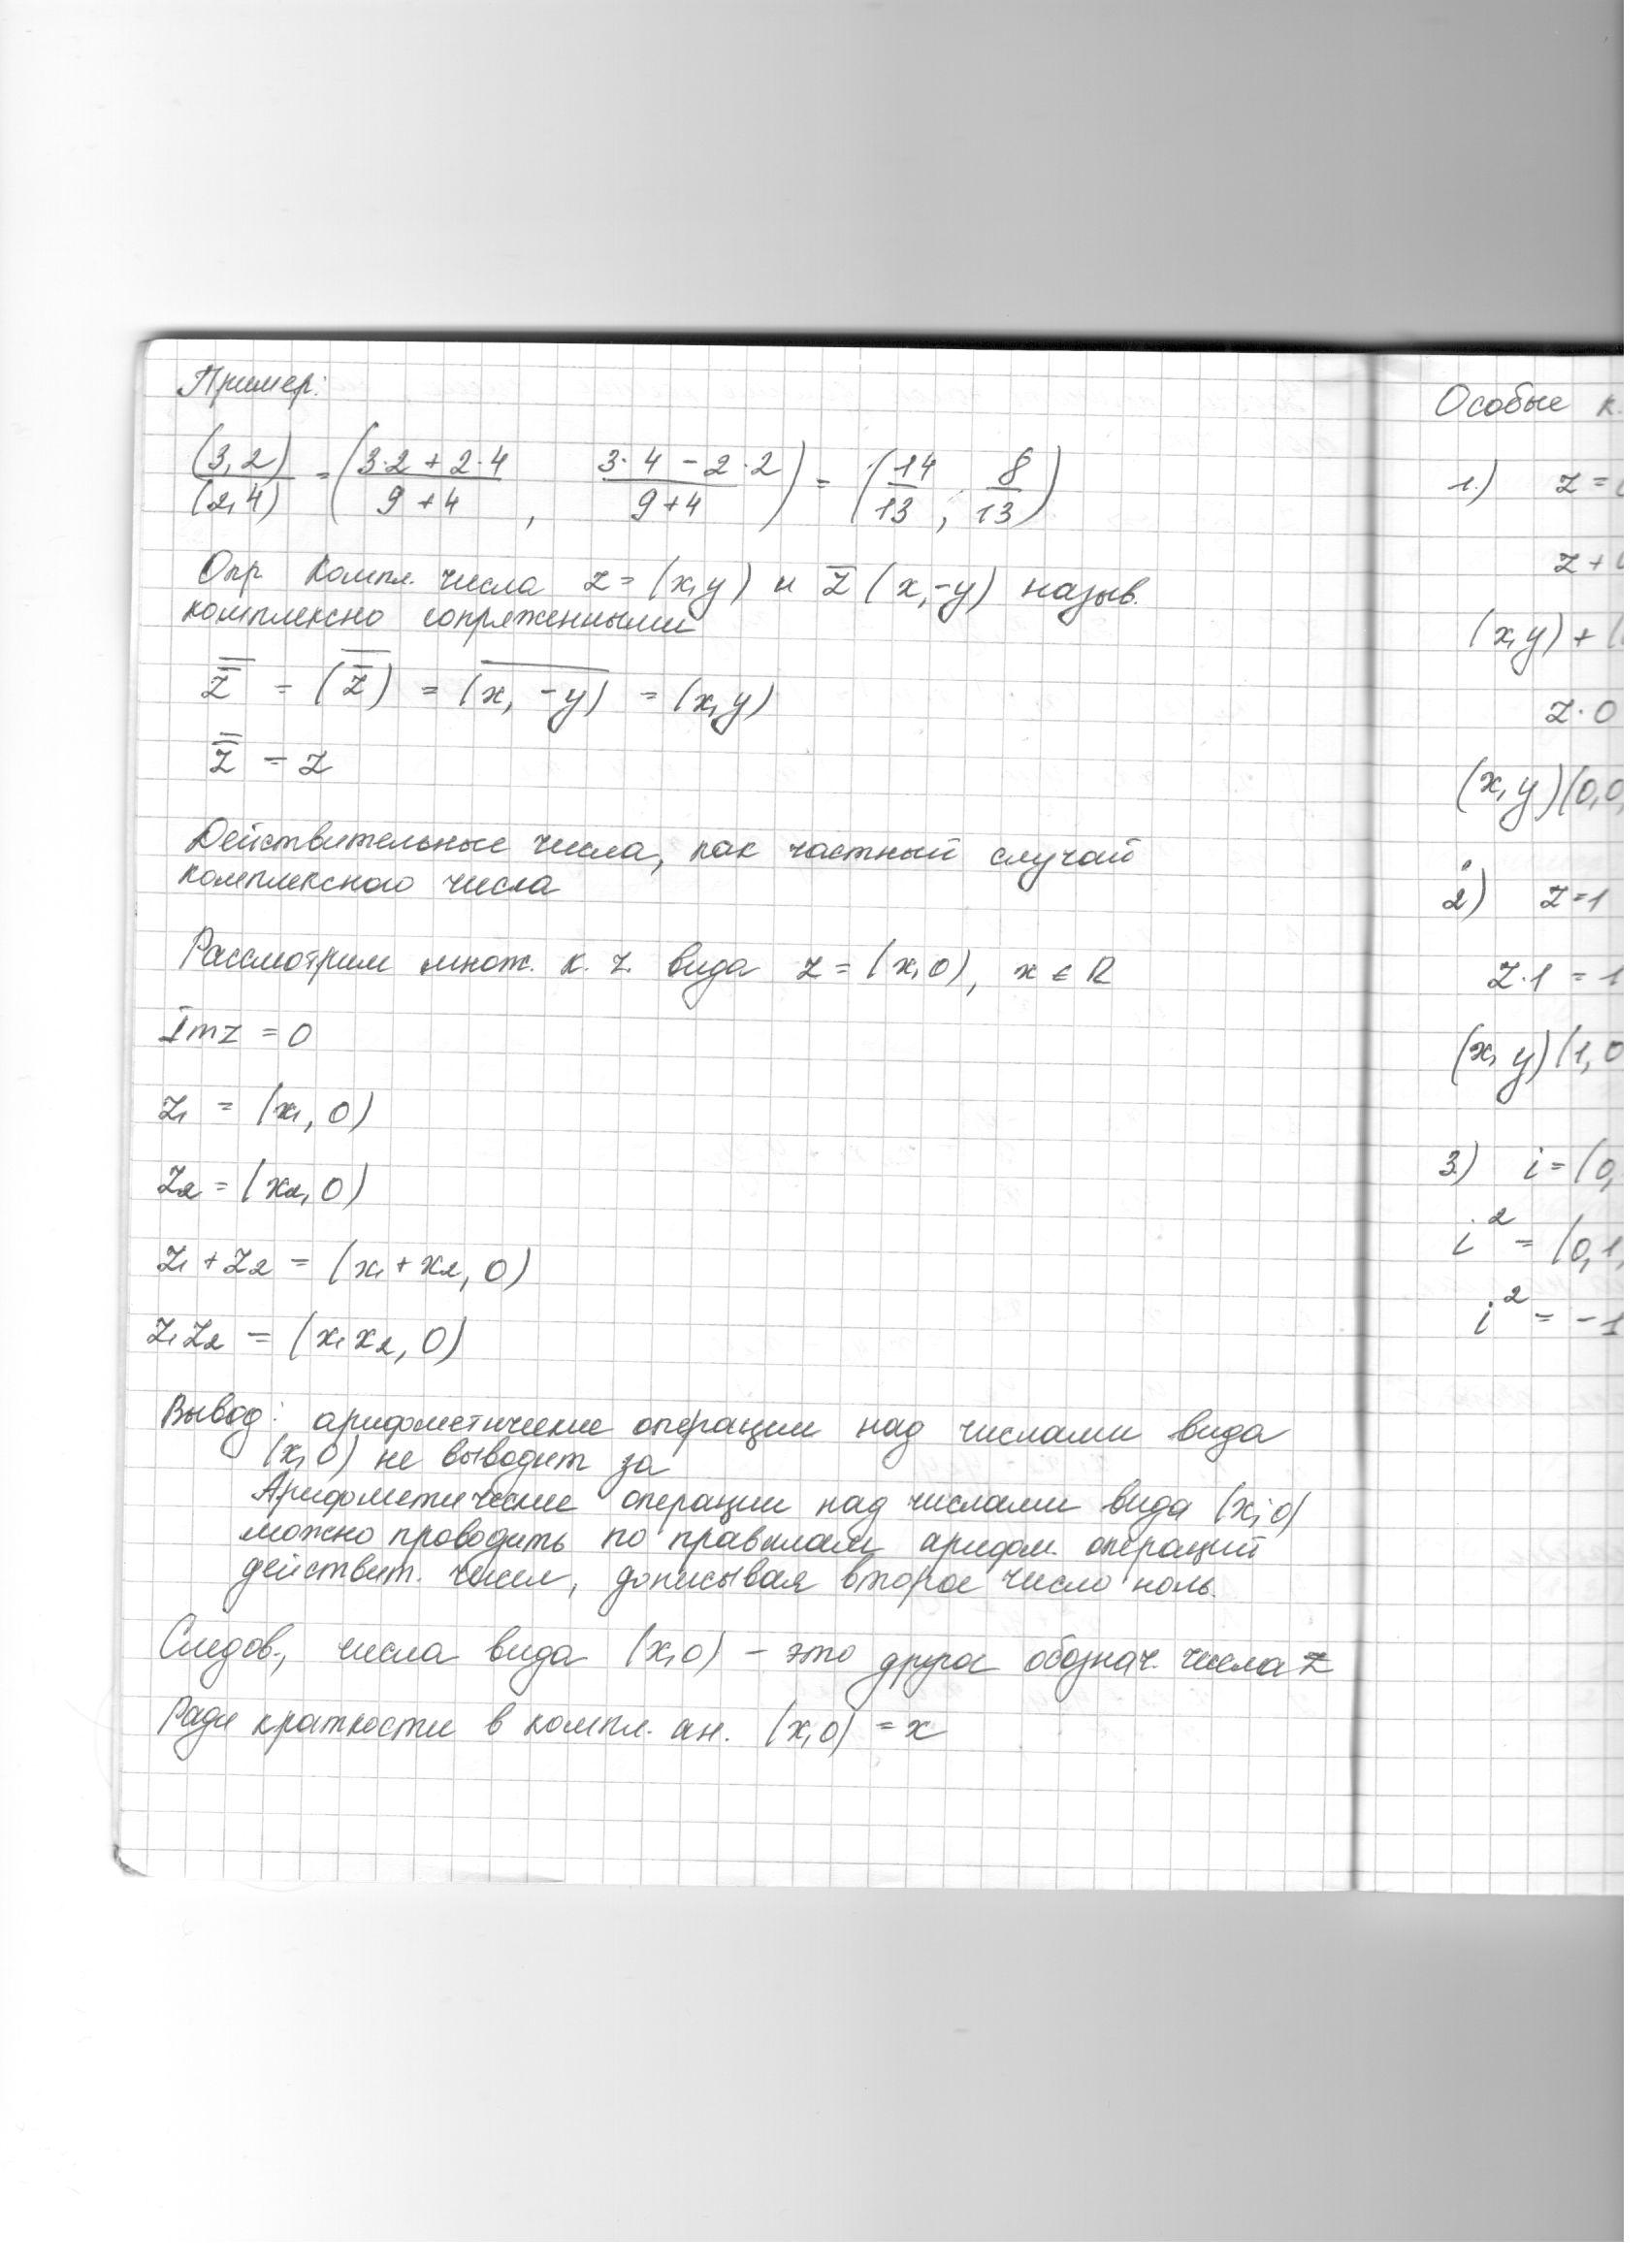 Пример:
(3,2)/(2,4) = ( (3·2 + 2·4)/(9+4) , (3·4 − 2·2)/(9+4) ) = ( 14/13 , 8/13 )
Опр Компл. числа z = (x,y) и z̅ (x,-y) назыв.
комплексно сопряженными
z̿ = (z̅)̅ = \overline{(x, -y)} = (x,y)
z̿ = z
Действительные числа, как частный случай
комплексного числа
Рассмотрим множ. к. ч. вида z = (x,0), x ∈ R
Imz = 0
z₁ = (x₁, 0)
z₂ = (x₂, 0)
z₁ + z₂ = (x₁ + x₂, 0)
z₁z₂ = (x₁x₂, 0)
Вывод: арифметические операции над числами вида
(x,0) не выводит за
Арифметические операции над числами вида (x;0)
можно проводить по правилам арифм. операций
действит. чисел, дописывая второе число ноль.
Следов., числа вида (x,0) – это другое обознач. числа z
Ради краткости в компл. ан. (x,0) = x
Особые к.
1.) z =
z +
(x,y) + (
z·0
(x,y)(0,0,
2) z=1
z·1 = 1
(x,y)(1,0
3.) i = (0,
i² = (0,1,
i² = -1